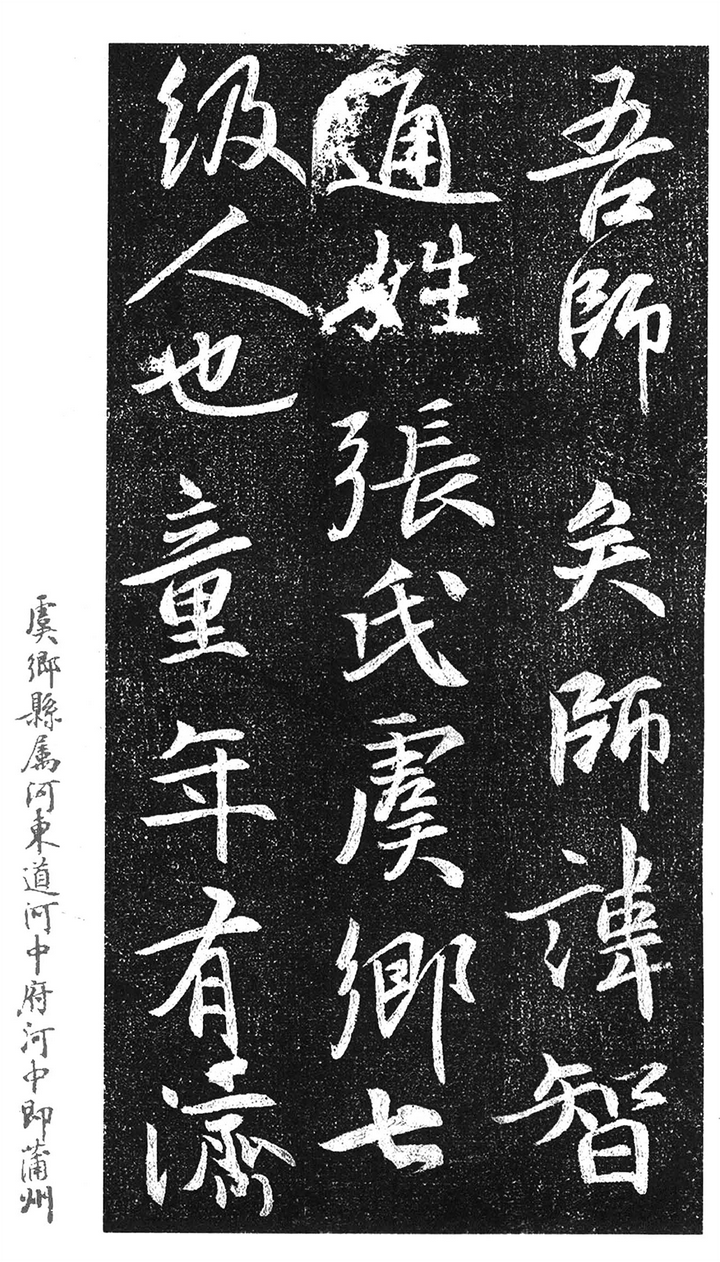 吾師矣師諱智
通姓張氏虞鄉七
級人也童年有濟
虞鄉縣属河東道河中府河中即蒲州